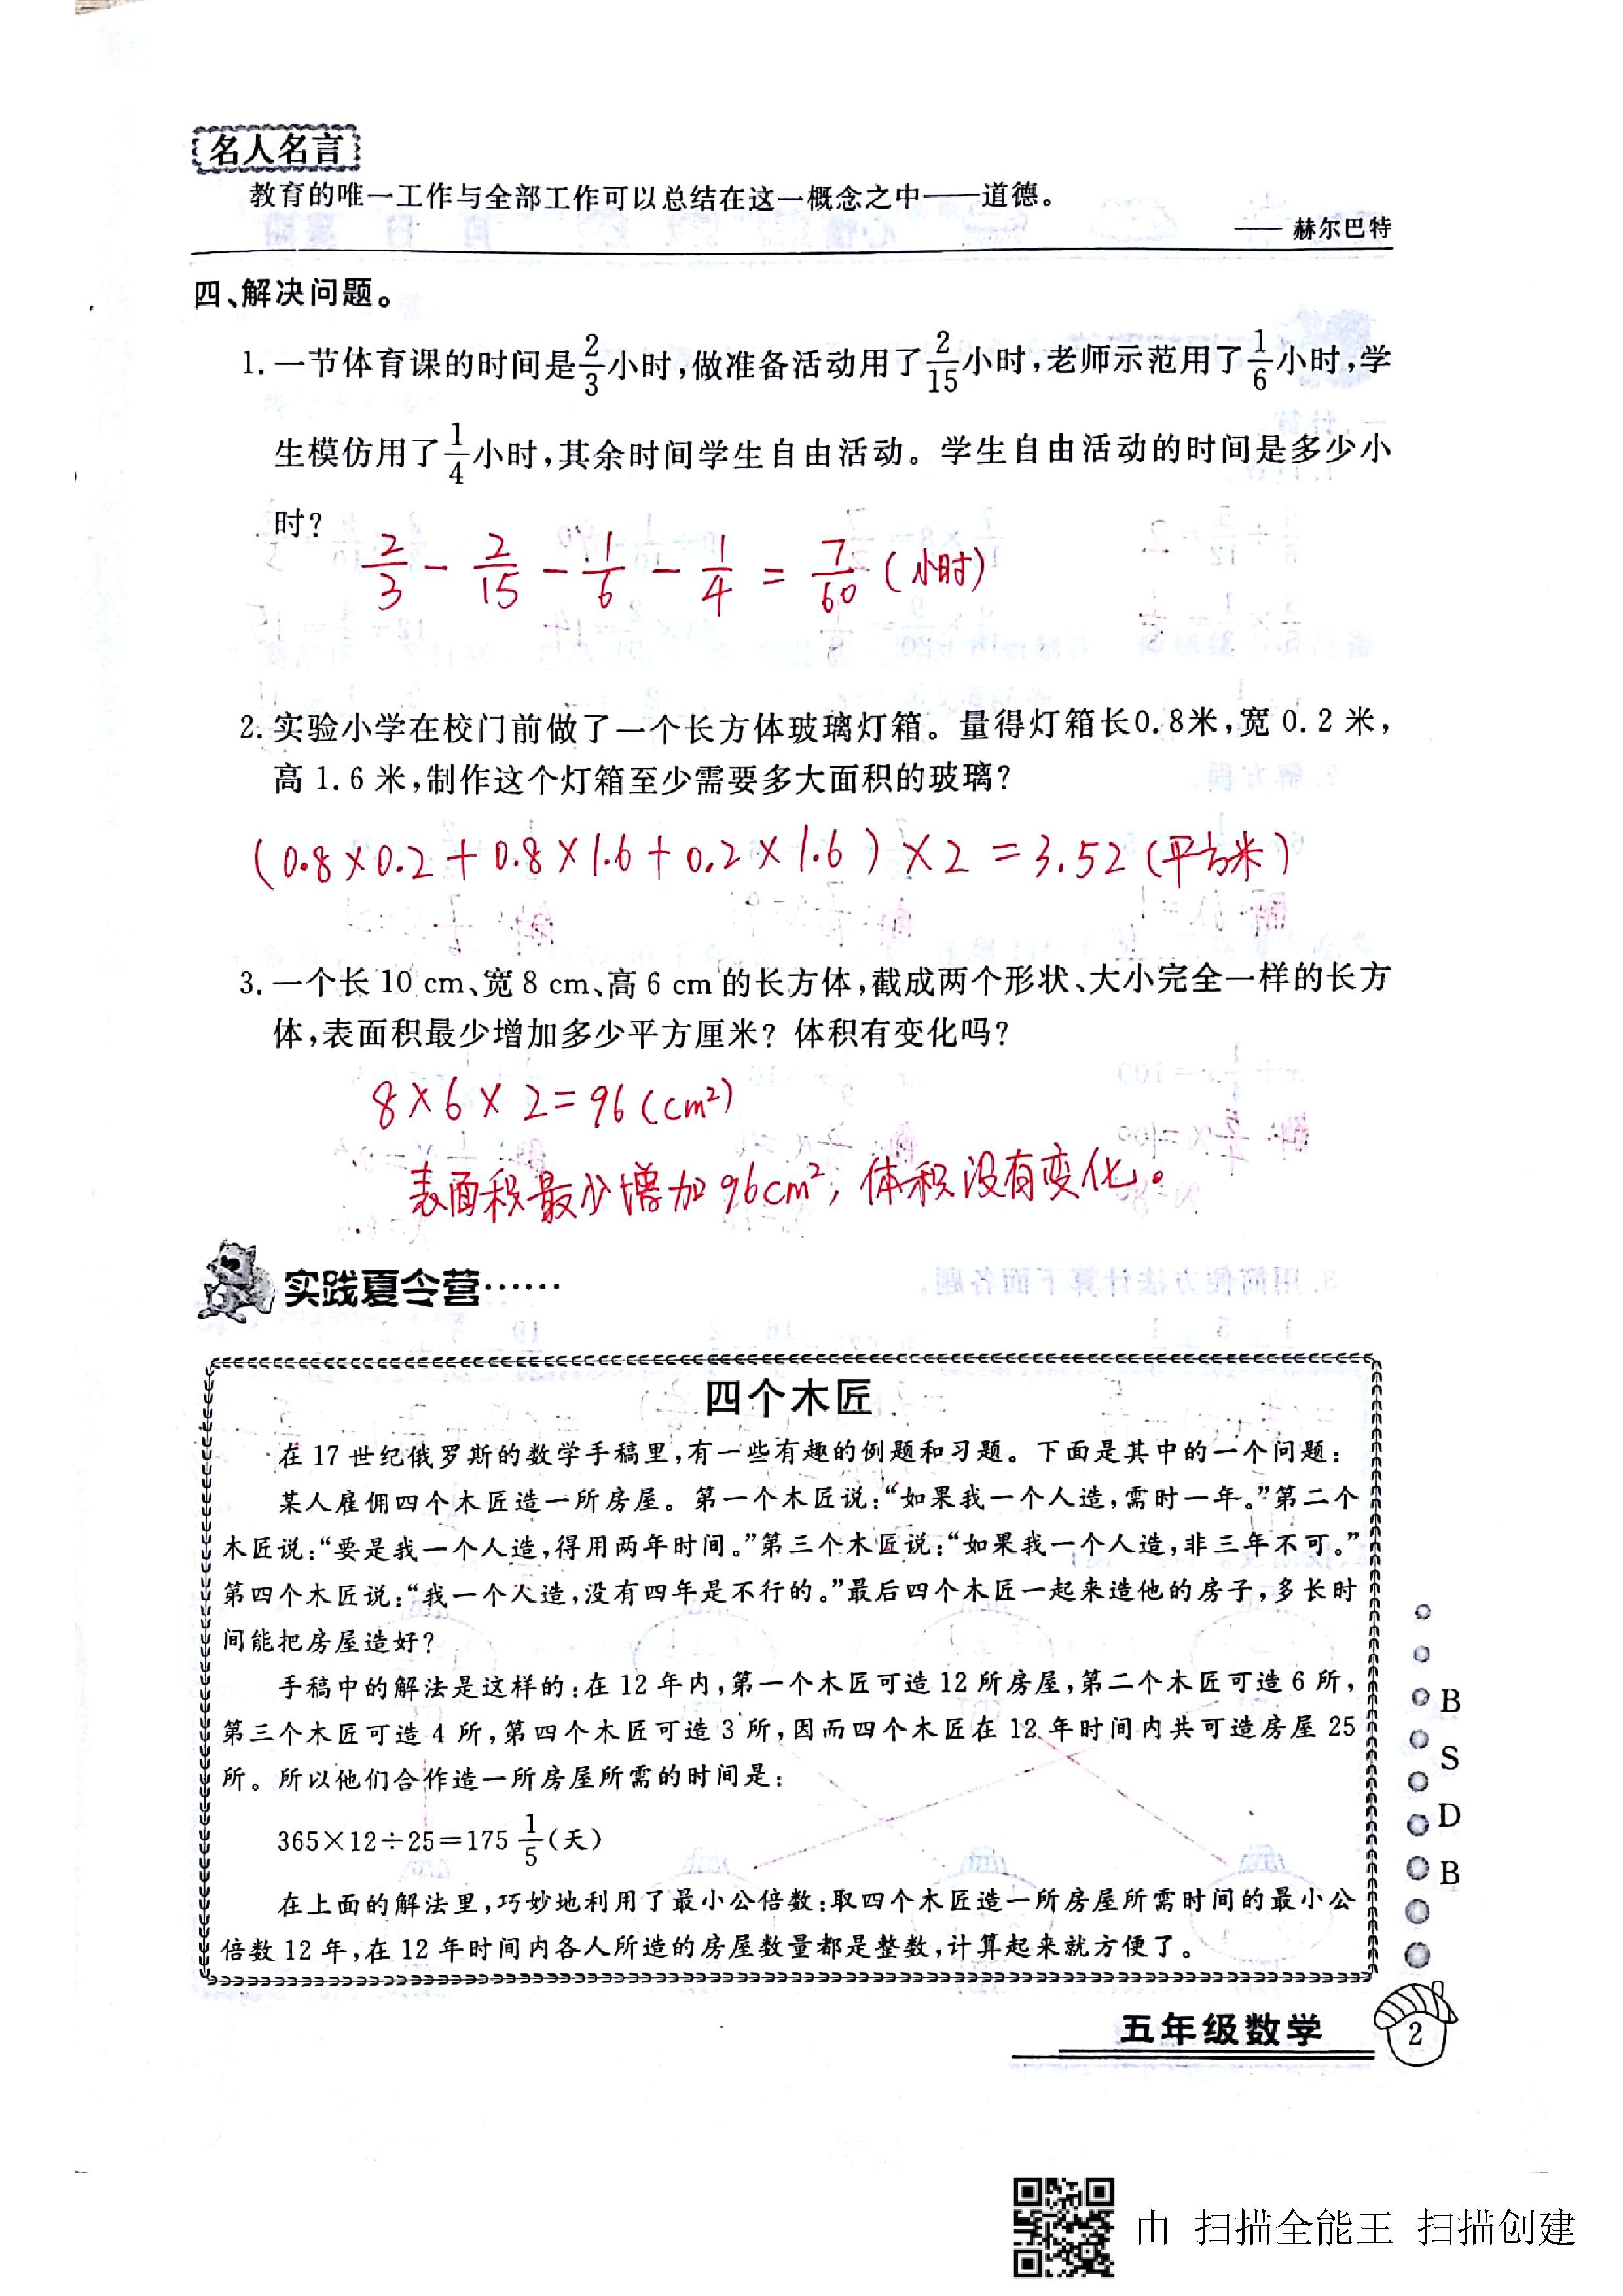 名人名言
教育的唯一工作与全部工作可以总结在这一概念之中——道德。
—— 赫尔巴特
四、解决问题。
1. 一节体育课的时间是2/3小时,做准备活动用了2/15小时,老师示范用了1/6小时,学
生模仿用了1/4小时,其余时间学生自由活动。学生自由活动的时间是多少小
时?
2/3 - 2/15 - 1/6 - 1/4 = 7/60 (小时)
2. 实验小学在校门前做了一个长方体玻璃灯箱。量得灯箱长0.8米,宽 0.2 米,
高 1.6 米,制作这个灯箱至少需要多大面积的玻璃?
(0.8×0.2+0.8×1.6+0.2×1.6)×2=3.52(平方米)
3. 一个长 10 cm、宽 8 cm、高 6 cm 的长方体,截成两个形状、大小完全一样的长方
体,表面积最少增加多少平方厘米? 体积有变化吗?
8×6×2=96(cm²)
表面积最少增加96cm²,体积没有变化。
实践夏令营……
四个木匠
在 17 世纪俄罗斯的数学手稿里,有一些有趣的例题和习题。下面是其中的一个问题:
某人雇佣四个木匠造一所房屋。第一个木匠说:“如果我一个人造,需时一年。”第二个
木匠说:“要是我一个人造,得用两年时间。”第三个木匠说:“如果我一个人造,非三年不可。”
第四个木匠说:“我一个人造,没有四年是不行的。”最后四个木匠一起来造他的房子,多长时
间能把房屋造好?
手稿中的解法是这样的:在 12 年内,第一个木匠可造 12 所房屋,第二个木匠可造 6 所,
第三个木匠可造 4 所,第四个木匠可造 3 所,因而四个木匠在 12 年时间内共可造房屋 25
所。所以他们合作造一所房屋所需的时间是:
365×12÷25=175 1/5(天)
在上面的解法里,巧妙地利用了最小公倍数:取四个木匠造一所房屋所需时间的最小公
倍数 12 年,在 12 年时间内各人所造的房屋数量都是整数,计算起来就方便了。
B
S
D
B
五年级数学
2
由 扫描全能王 扫描创建